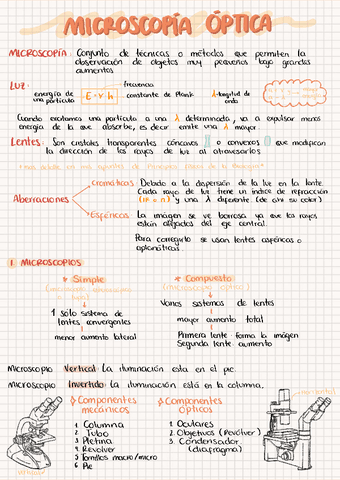 MICROSCOPÍA ÓPTICA
MICROSCOPÍA: Conjunto de técnicas o métodos que permiten la
observación de objetos muy pequeños bajo grandes
aumentos
LUZ:
frecuencia
energía de
una partícula
E = v h
constante de Plank
λ = longitud de
onda
Cuando excitamos una partícula a una λ determinada, va a expulsar menos
energía de la que absorbe, es decir emite una λ mayor.
Lentes: Son cristales transparentes cóncavos o convexos que modifican
la dirección de los rayos de luz al atravesarlos
Aberraciones
Cromáticas: Debido a la dispersión de la luz en la lente.
Cada rayo de luz tiene un índice de refracción
y una λ diferente (de ahí su color)
Esféricas: La imagen se ve borrosa ya que los rayos
están alejados del eje central.
Para corregirlo se usan lentes asféricas o
aplanáticas
1. MICROSCOPIOS
Simple
1 sólo sistema de
lentes convergentes
menor aumento lateral
Compuesto
(microscopio óptico)
Varios sistemas de lentes
mayor aumento total
Primera lente forma la imagen
Segunda lente aumento
Microscopio Vertical: La iluminación esta en el pie.
Microscopio Invertido: La iluminación está en la columna.
Componentes
mecánicos
1. Columna
2. Tubo
3. Pletina
4. Revolver
5. Tornillos macro/micro
6. Pie
Componentes
ópticos
1. Oculares
2. Objetivos (Revólver)
3. Condensador
(diafragma)